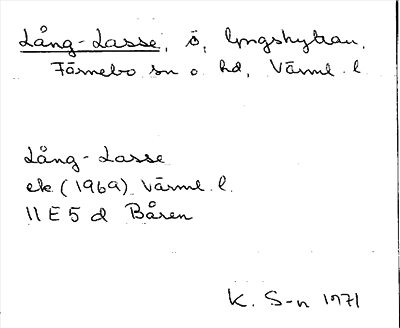 Lång-Lasse, ö, Lyngshyttan,
Färnebo sn o. hd, Värml. l.
Lång-Lasse
ek (1969) Värml. l.
11 E 5 d Båren
K. S-n 1971